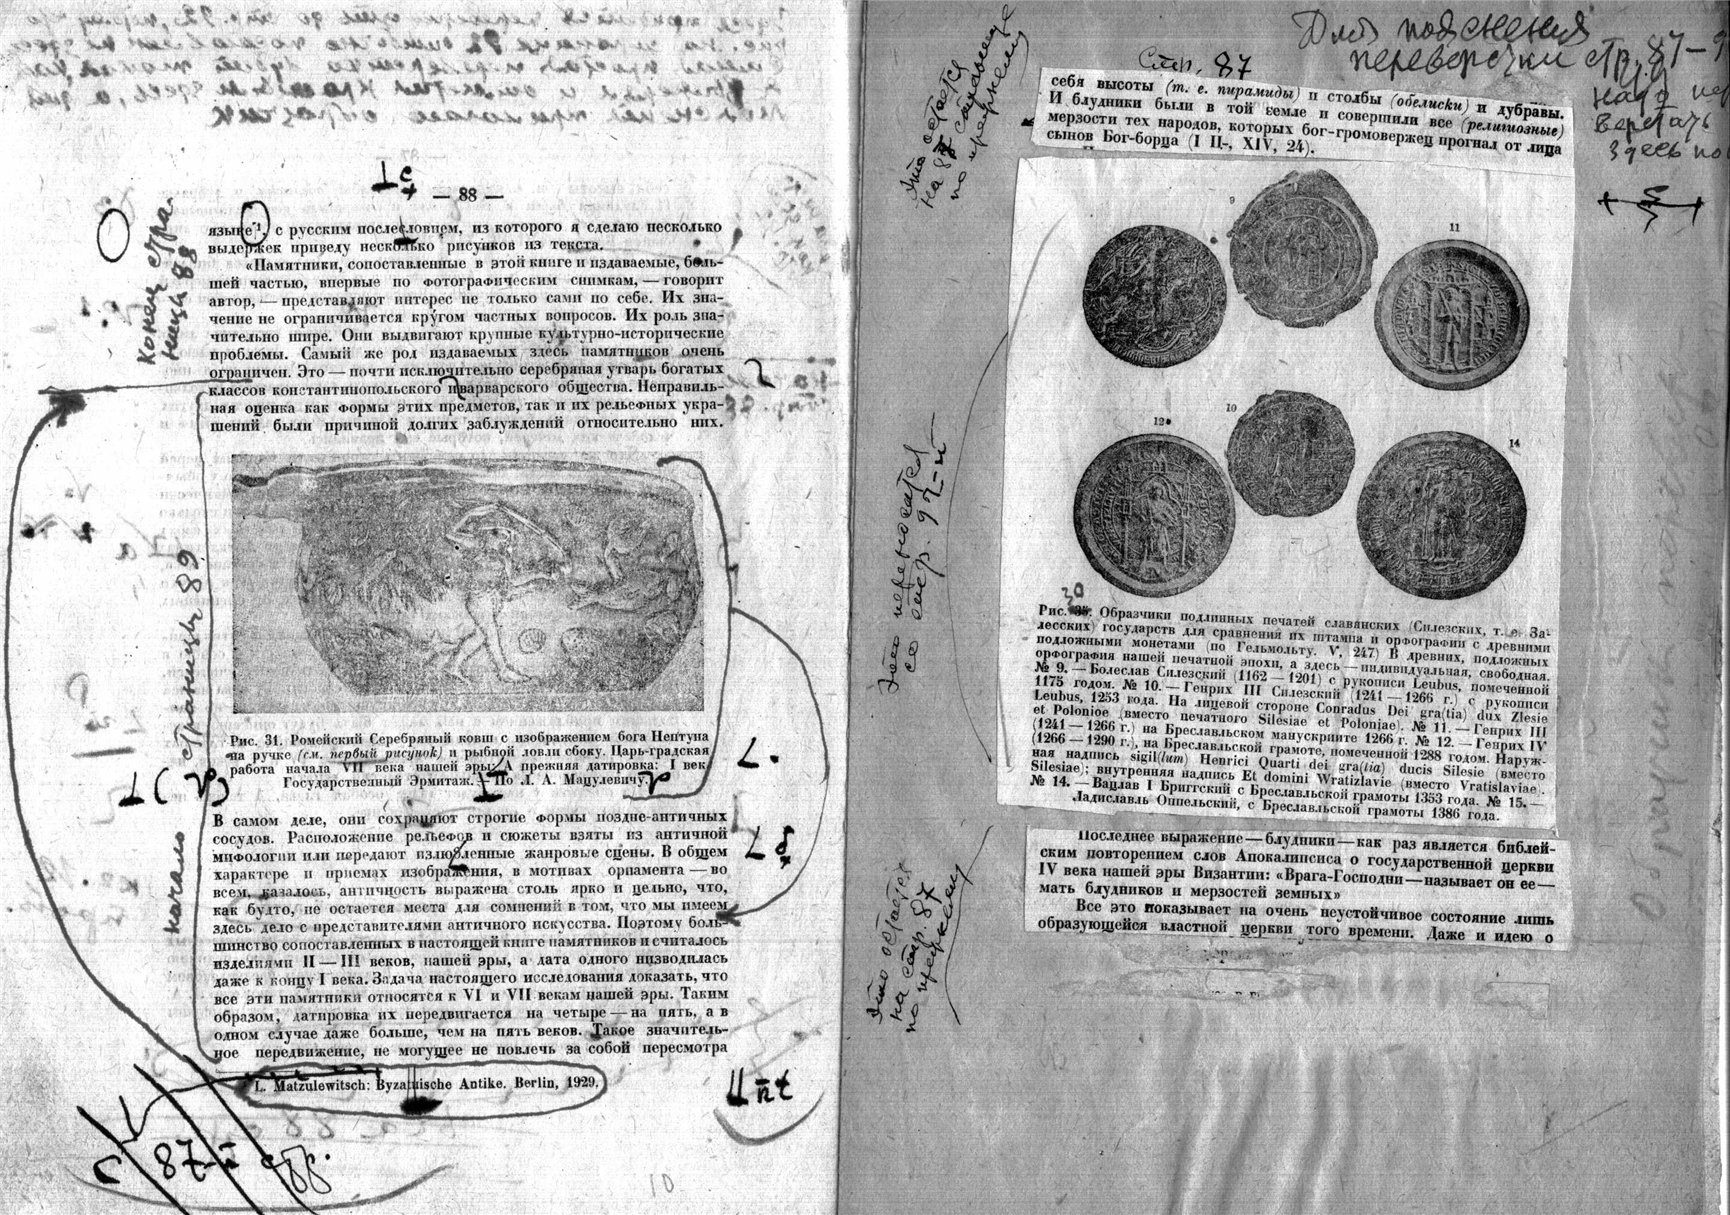 — 88 —
языке ¹, с русским послесловием, из которого я сделаю несколько
выдержек приведу несколько рисунков из текста.
«Памятники, сопоставленные в этой книге и издаваемые, боль-
шей частью, впервые по фотографическим снимкам, — говорит
автор, — представляют интерес не только сами по себе. Их зна-
чение не ограничивается кругом частных вопросов. Их роль зна-
чительно шире. Они выдвигают крупные культурно-исторические
проблемы. Самый же род издаваемых здесь памятников очень
ограничен. Это — почти исключительно серебряная утварь богатых
классов константинопольского и варварского общества. Неправиль-
ная оценка как формы этих предметов, так и их рельефных укра-
шений были причиной долгих заблуждений относительно них.
Рис. 31. Ромейский Серебряный ковш с изображением бога Нептуна
на ручке (см. первый рисунок) и рыбной ловли сбоку. Царь-градская
работа начала VII века нашей эры. А прежняя датировка: I век
Государственный Эрмитаж. По Л. А. Мацулевичу
В самом деле, они сохраняют строгие формы поздне-античных
сосудов. Расположение рельефов и сюжеты взяты из античной
мифологии или передают излюбленные жанровые сцены. В общем
характере и приемах изображения, в мотивах орнамента — во
всем, казалось, античность выражена столь ярко и цельно, что,
как будто, не остается места для сомнений в том, что мы имеем
здесь дело с представителями античного искусства. Поэтому боль-
шинство сопоставленных в настоящей книге памятников и считалось
изделиями II — III веков, нашей эры, а дата одного низводилась
даже к концу I века. Задача настоящего исследования доказать, что
все эти памятники относятся к VI и VII векам нашей эры. Таким
образом, датировка их передвигается на четыре — на пять, а в
одном случае даже больше, чем на пять веков. Такое значитель-
ное передвижение, не могущее не повлечь за собой пересмотра
L. Matzulewitsch: Byzantnische Antike. Berlin, 1929.
Конец стра-
ницы 88
начало страницы 89
87-й
88.
10
Для пояснения
переверстки стр. 87-9
надо пе
верстать
здесь по
Стр. 87
себя высоты (т. е. пирамиды) и столбы (обелиски) и дубравы.
И блудники были в той земле и совершили все (религиозные)
мерзости тех народов, которых бог-громовержец прогнал от лица
сынов Бог-борца (I Ц-, XIV, 24).
Это остается
на 87 странице
по прежнему
9
11
12
10
14
Это переносится
со стр. 92-й
30
Рис. 35. Образчики подлинных печатей славянских (Силезских, т. е. За-
лесских) государств для сравнения их штампа и орфографии с древними
подложными монетами (по Гельмольту. V, 247) В древних, подложных
орфография нашей печатной эпохи, а здесь — индивидуальная, свободная.
№ 9. — Болеслав Силезский (1162 — 1201) с рукописи Leubus, помеченной
1175 годом. № 10. — Генрих III Силезский (1241 — 1266 г.) с рукописи
Leubus, 1253 года. На лицевой стороне Conradus Dei gra(tia) dux Zlesie
et Polonioe (вместо печатного Silesiae et Poloniae). № 11. — Генрих III
(1241 — 1266 г.) на Бреславльском манускрипте 1266 г. № 12. — Генрих IV
(1266 — 1290 г.), на Бреславльской грамоте, помеченной 1288 годом. Наруж-
ная надпись sigil(lum) Henrici Quarti dei gra(tia) ducis Silesie (вместо
Silesiae); внутренняя надпись Et domini Wratizlavie (вместо Vratislaviae).
№ 14. — Вацлав I Бриггский с Бреславльской грамоты 1353 года. № 15. —
Ладиславль Оппельский, с Бреславльской грамоты 1386 года.
Последнее выражение — блудники — как раз является библей-
ским повторением слов Апокалипсиса о государственной церкви
IV века нашей эры Византии: «Врага-Господни — называет он ее —
мать блудников и мерзостей земных»
Все это показывает на очень неустойчивое состояние лишь
образующейся властной церкви того времени. Даже и идею о
Это остается
на стр. 87
по прежнему